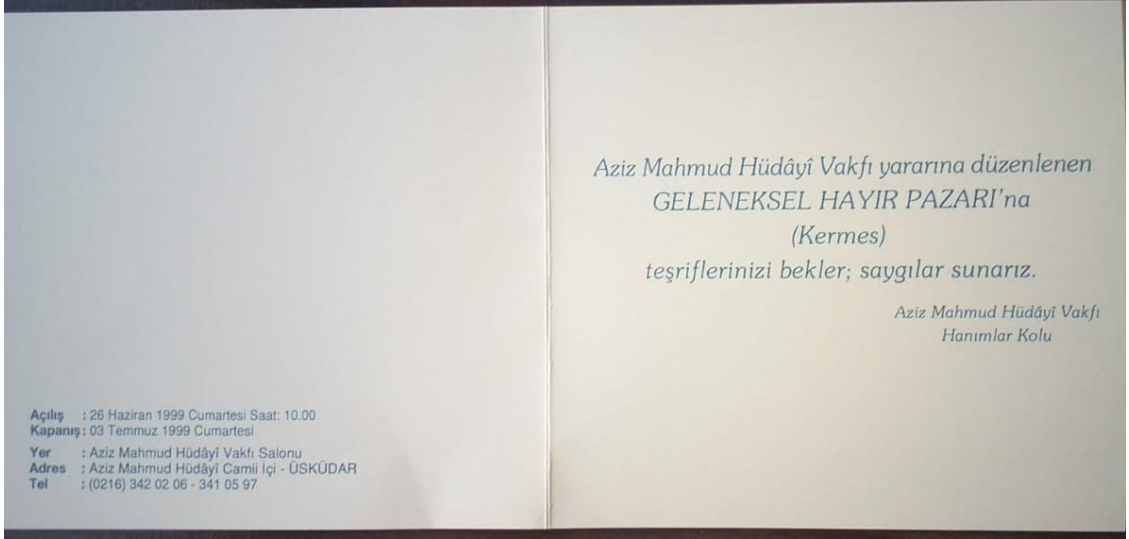 Açılış : 26 Haziran 1999 Cumartesi Saat: 10.00
Kapanış : 03 Temmuz 1999 Cumartesi
Yer : Aziz Mahmud Hüdâyî Vakfı Salonu
Adres : Aziz Mahmud Hüdâyî Camii İçi - ÜSKÜDAR
Tel : (0216) 342 02 06 - 341 05 97
Aziz Mahmud Hüdâyî Vakfı yararına düzenlenen
GELENEKSEL HAYIR PAZARI'na
(Kermes)
teşriflerinizi bekler; saygılar sunarız.
Aziz Mahmud Hüdâyî Vakfı
Hanımlar Kolu